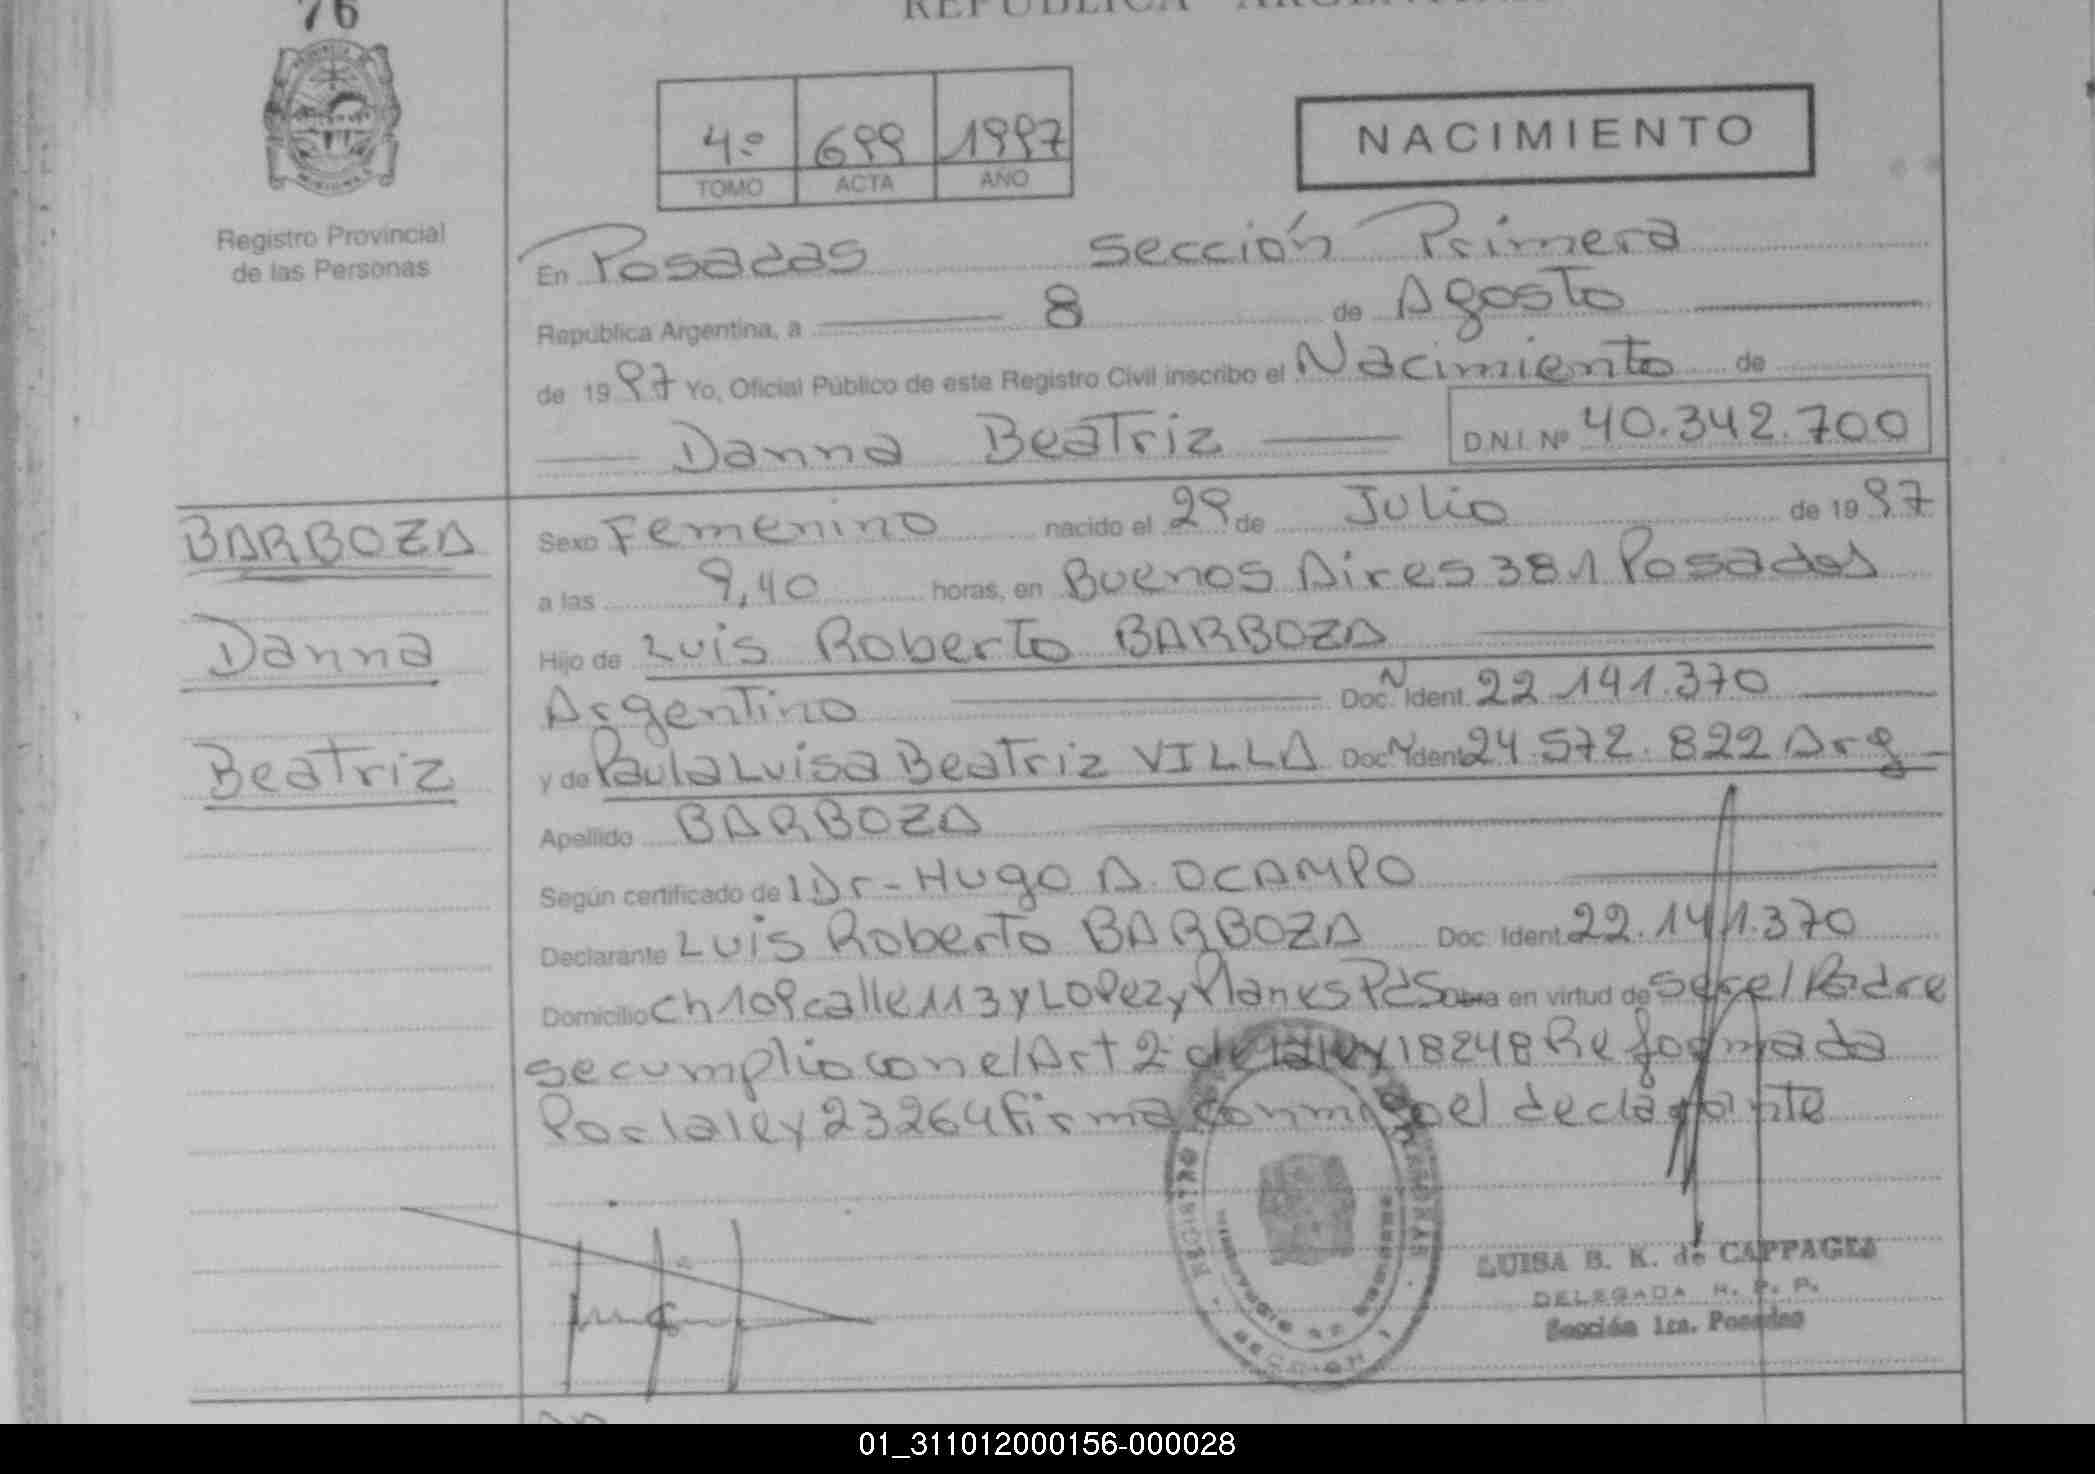 76
REPUBLICA ARGENTINA
Registro Provincial
de las Personas
4º 699 1997
TOMO ACTA AÑO
NACIMIENTO
En Posadas sección Primera
República Argentina, a 8 de Agosto
de 1997 Yo, Oficial Público de este Registro Civil inscribo el Nacimiento de
Danna Beatriz D.N.I. Nº 40.342.700
BARBOZA
Danna
Beatriz
Sexo Femenino nacido el 29 de Julio de 1997
a las 9,40 horas, en Buenos Aires 381 Posadas
Hijo de Luis Roberto BARBOZA
Argentino Doc. N Ident. 22.141.370
y de Paula Luisa Beatriz VILLA Doc. N Ident. 24.572.822 Arg
Apellido BARBOZA
Según certificado de l Dr. Hugo A. OCAMPO
Declarante Luis Roberto BARBOZA Doc. Ident. 22.141.370
Domicilio Ch 109 calle 113 y Lopez y Planes Pds Obra en virtud de ser el Padre
se cumplio con el Art 2 de la ley 18248 Reformada
Por la ley 23264 firma conmigo el declarante
LUISA B. K. de CAPPAGLI
DELEGADA R. P. P.
Sección 1ra. Posadas
01_311012000156-000028